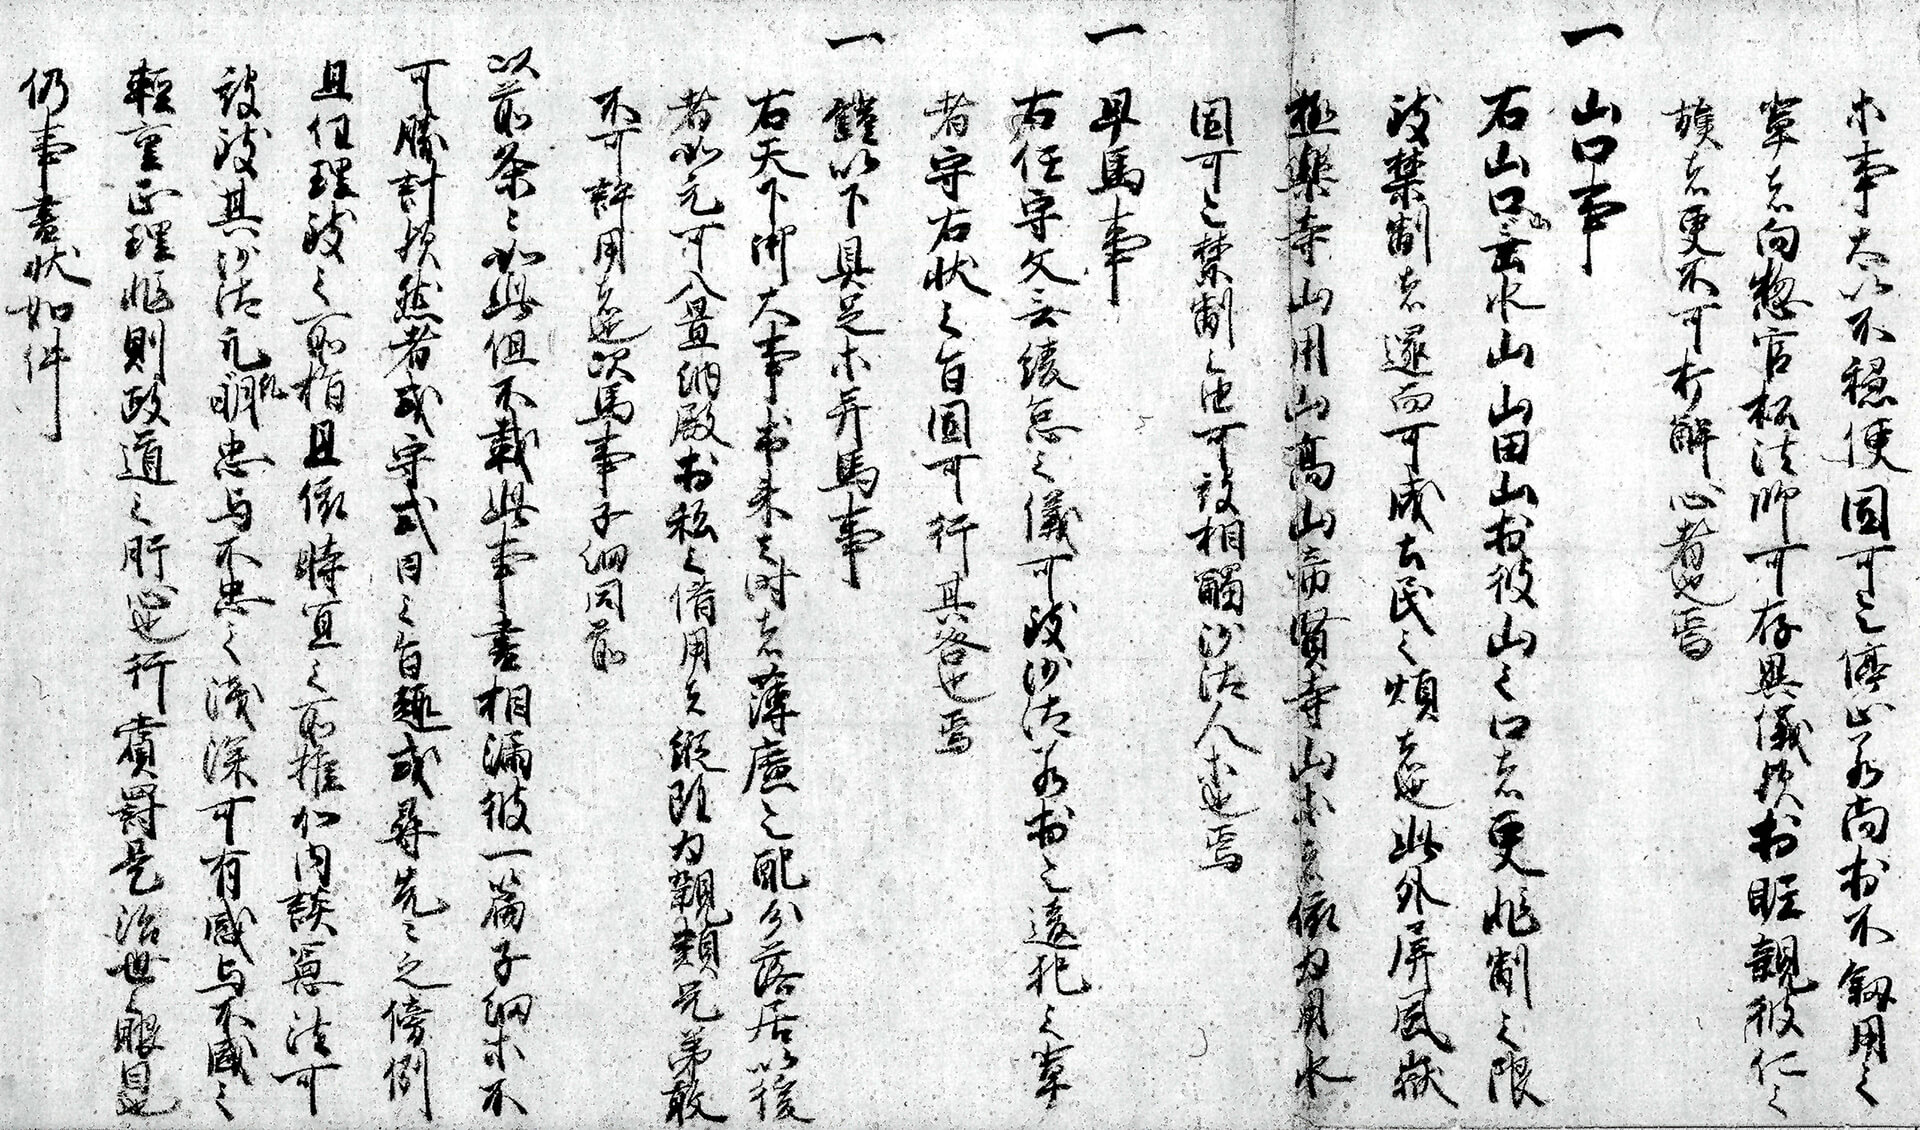 木事太以不穏便固可之停止若尚於不叙用之
輩者向惣官拡法師可存異儀於於眤親彼仁之
族者更不可打解心者也焉
一 山口事
右山口云水山山田山於彼山之口者更非制之限
致禁制者還而可成土民之煩者也此外屏風嶽
極楽寺山用山高山帝賢寺山木者依為用水
固可之禁制之由可被相触沙汰人等也焉
一 早馬事
右任守文云緩怠之儀可致沙汰若於之違犯之輩
者守右状之旨固可行其咎也焉
一 鎧以下具足木并馬事
右天下御大事出来之時者薄広之配分落居以後
者如元可入置納殿於私之借用者縦雖為親類兄弟敢
不可許用者也次馬事子細同前
以前条々如此但不載此事書相漏彼一篇子細木不
可勝計於然者或守式目之旨趣或尋先々之傍例
且任理致之所指且依時宜之所推加内談憲法可
被致其沙汰凡明忠与不忠之浅深可有感与不感之
軽重正理非則政道之所也行賞罰是治世之眼目也
仍事書状如件